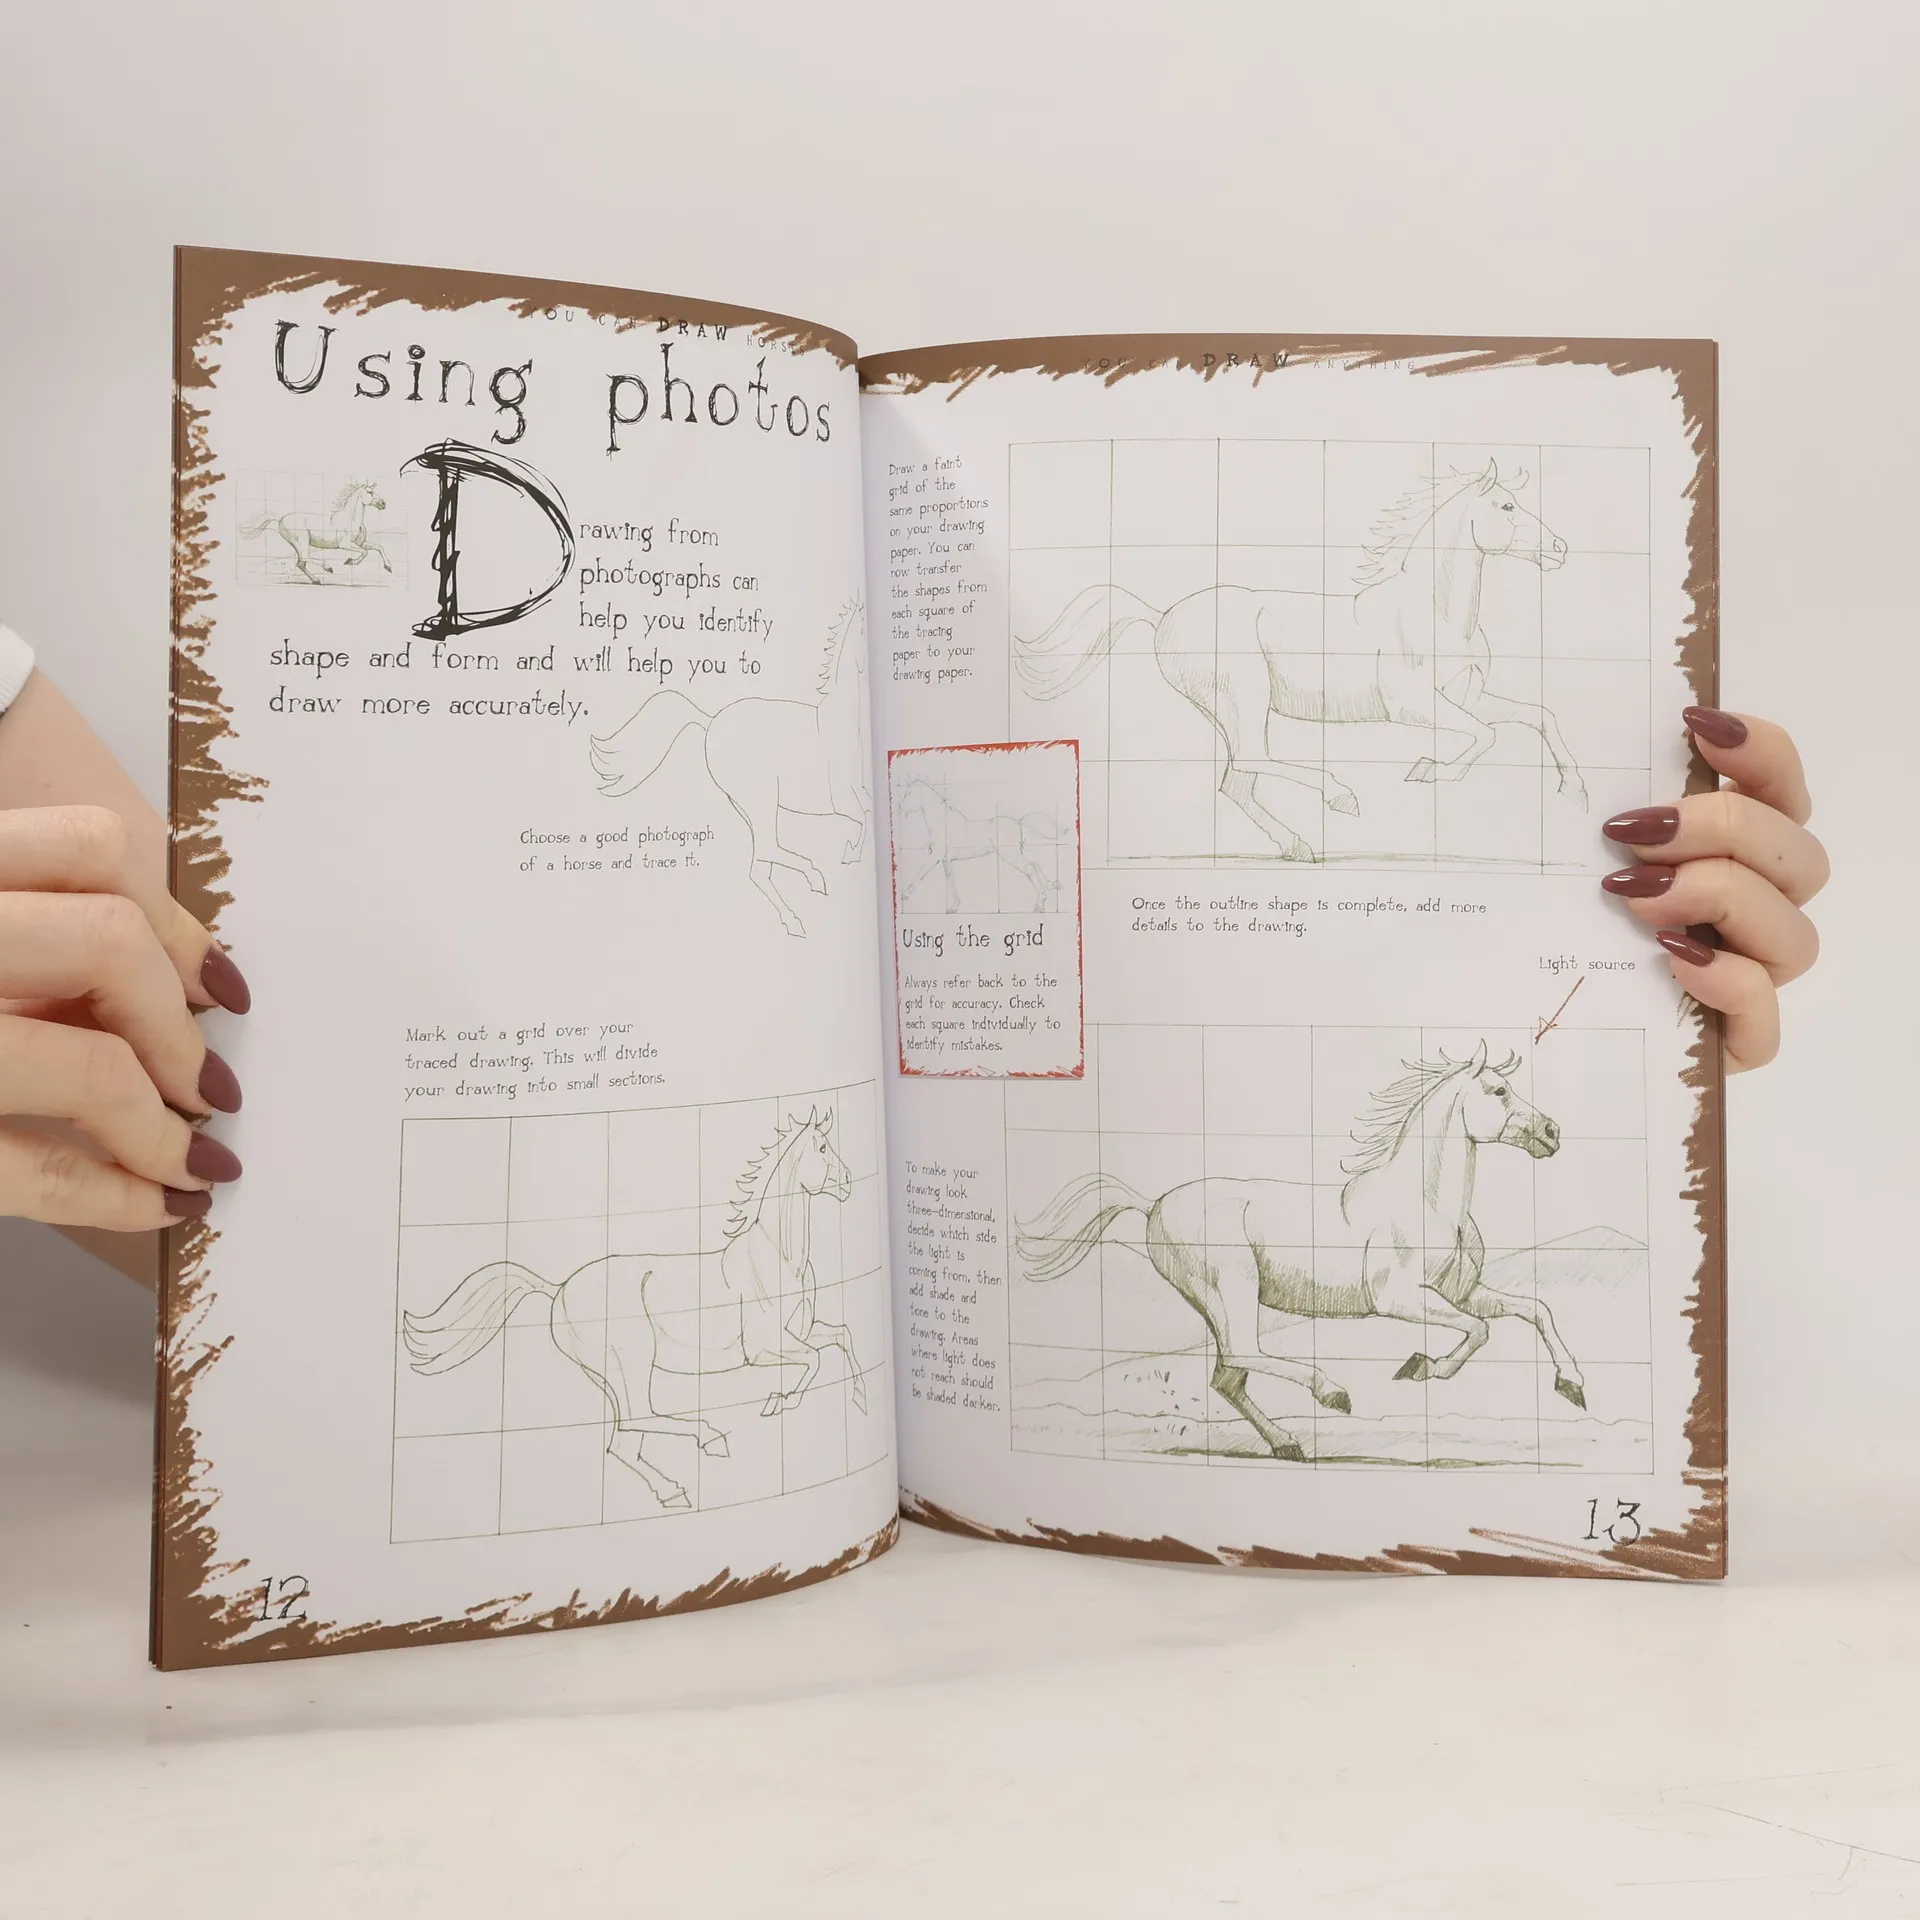 YOU CAN DRAW HORSES
Using photos
Drawing from
photographs can
help you identify
shape and form and will help you to
draw more accurately.
Choose a good photograph
of a horse and trace it.
Mark out a grid over your
traced drawing. This will divide
your drawing into small sections.
12
YOU CAN DRAW ANYTHING
Draw a faint
grid of the
same proportions
on your drawing
paper. You can
now transfer
the shapes from
each square of
the tracing
paper to your
drawing paper.
Using the grid
Always refer back to the
grid for accuracy. Check
each square individually to
identify mistakes.
Once the outline shape is complete, add more
details to the drawing.
Light source
To make your
drawing look
three-dimensional,
decide which side
the light is
coming from, then
add shade and
tone to the
drawing. Areas
where light does
not reach should
be shaded darker.
13